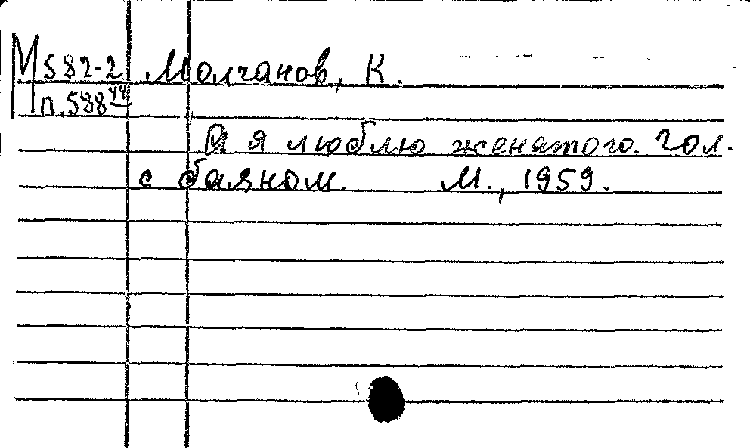 М 582-2 Молчанов, К.
п. 588 44
А я люблю женатого. Гол.
с баяном. М., 1959.